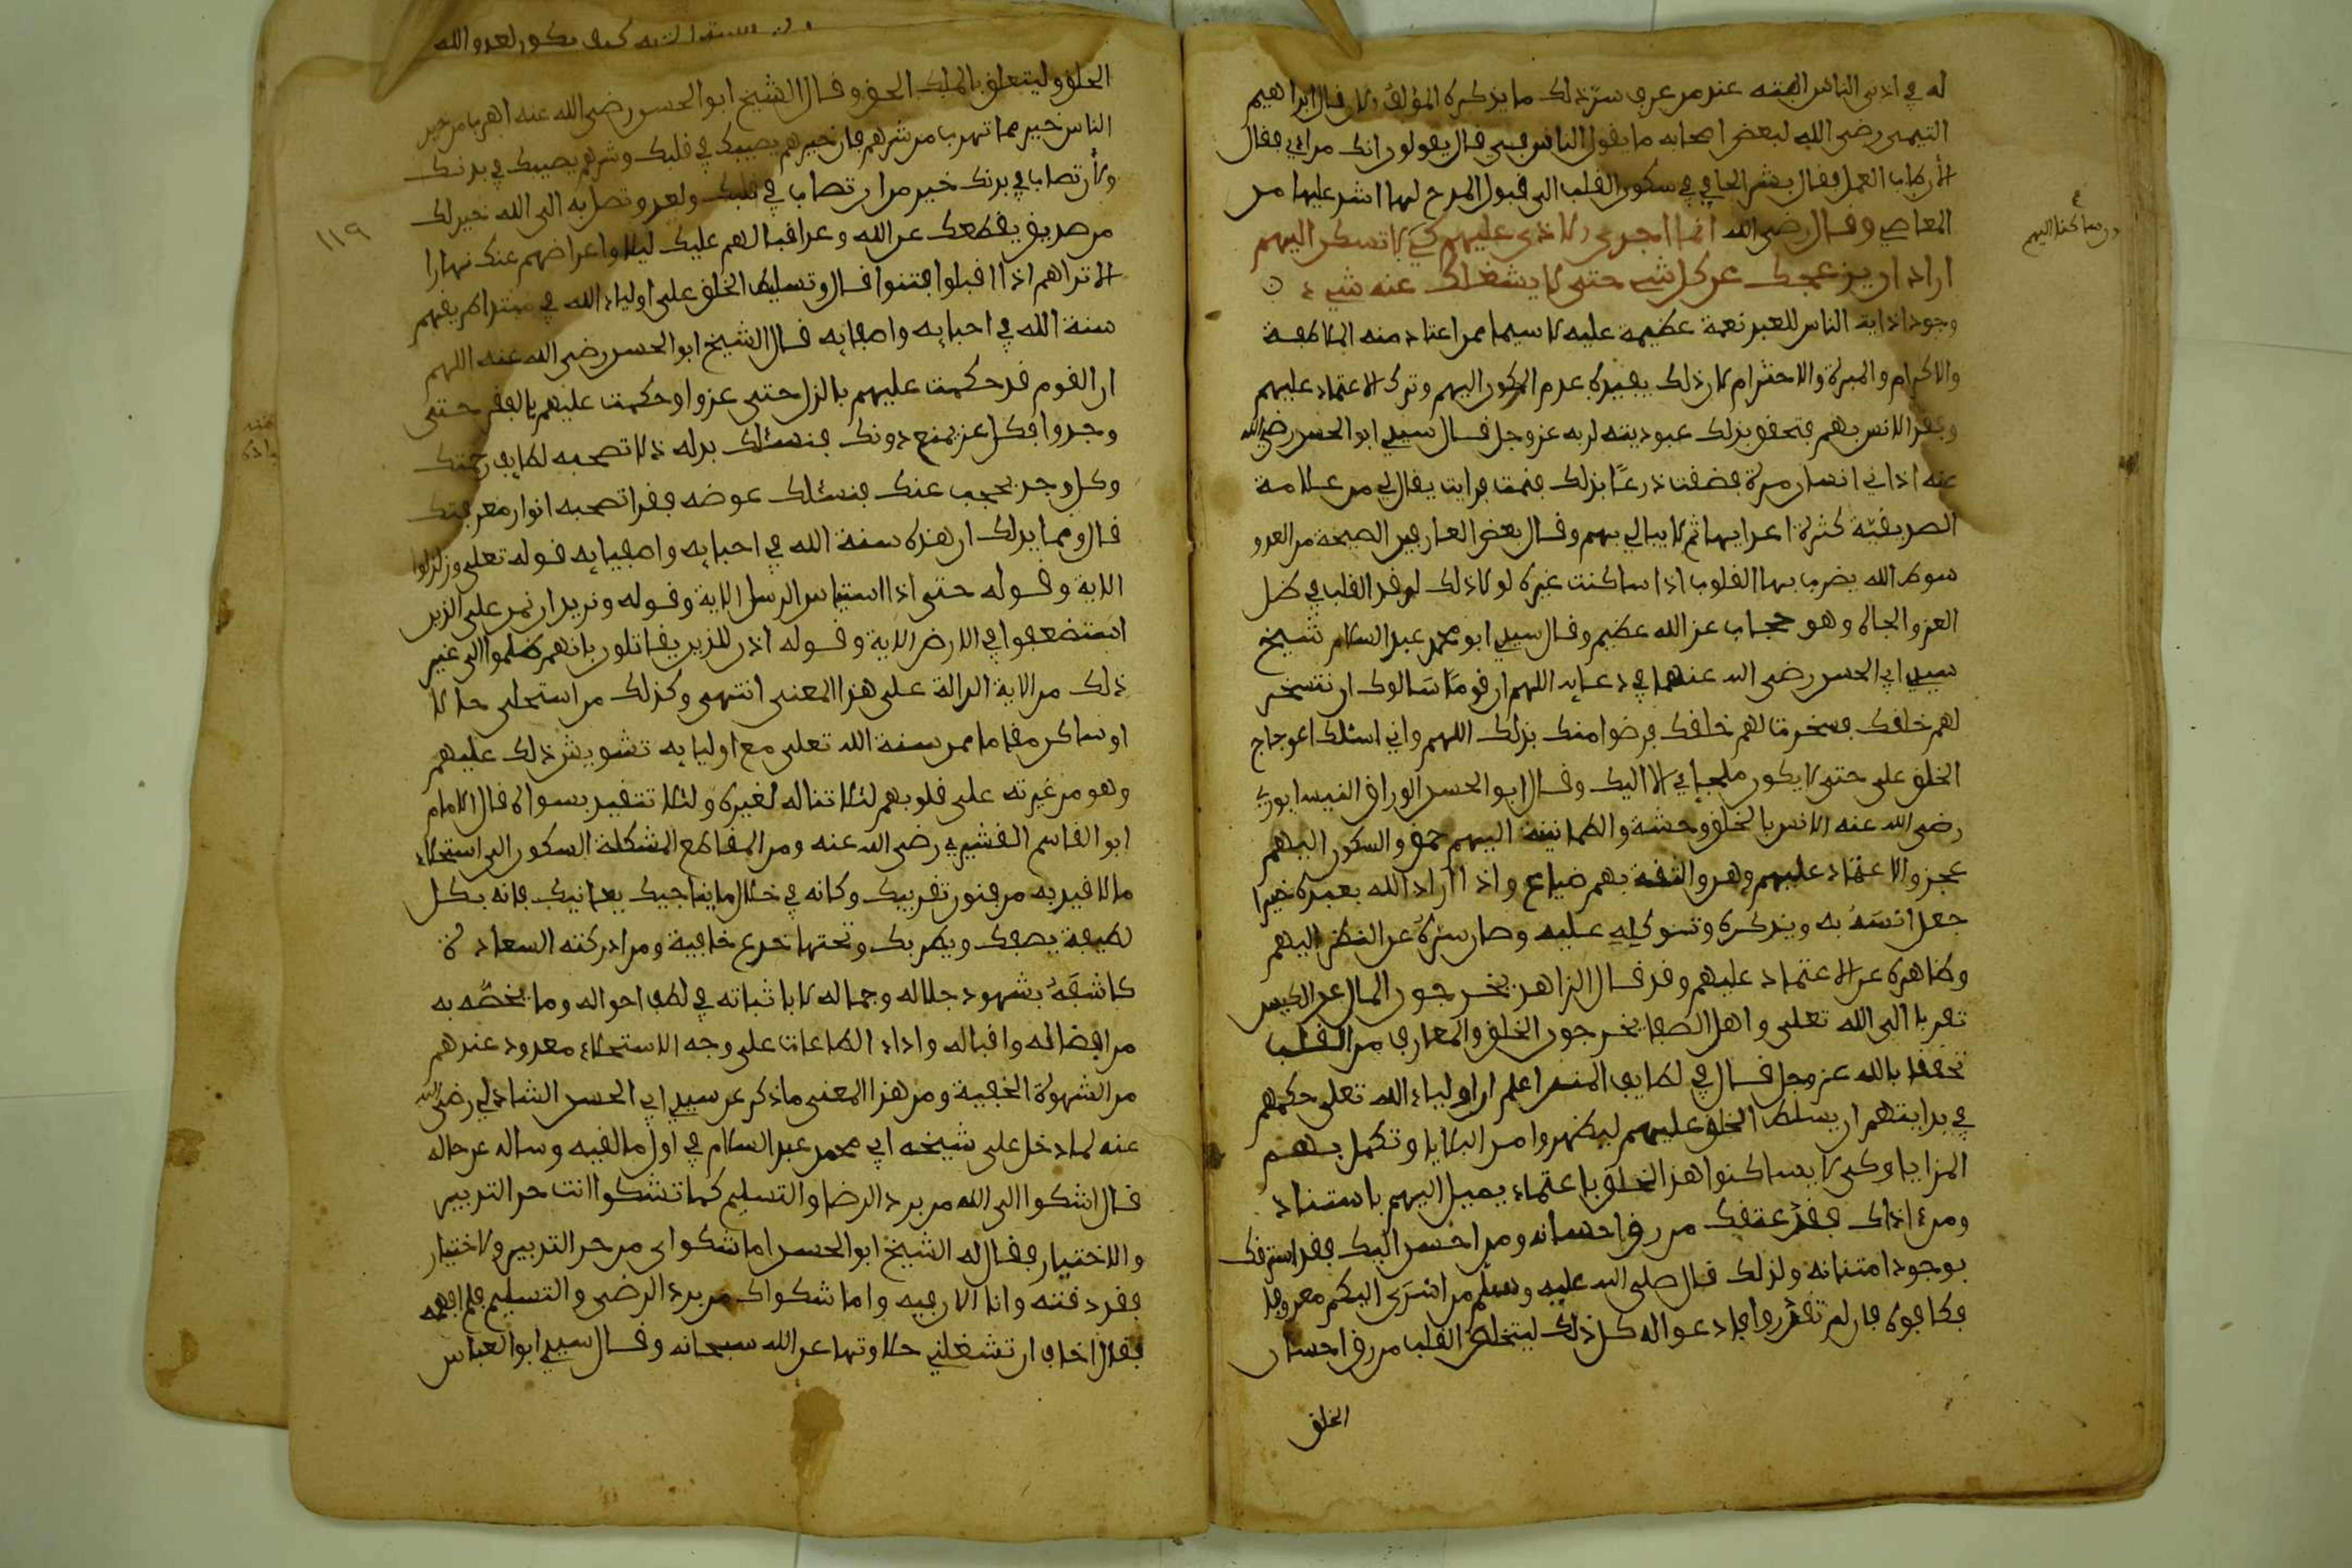 له في اذى الناس اليه عند من عرف سر ذلك ما يذكره المؤلف الان قال ابراهيم
التيمي رضى الله لبعض اصحابه ما يقول الناس في قال يقولون انك مراءي فقال
الان طاب العمل فقال بشر الحافي في سكون القلب الى قبول المدح لها اشد عليها من
المعاصي وقال رضى الله انما اجرى الاذى عليهم كي لا تسكن اليهم
اراد ان يزعجك عن كل شيء حتى لا يشغلك عنه شيء
وجود اذاية الناس للعبد نعمة عظيمة عليه لا سيما ممن اعتاد منه الملاطفة
والاكرام والمبرة والاحترام لان ذلك يفيده عدم الركون اليهم وترك الاعتماد عليهم
وفقد الانس بهم فتحقق بذلك عبوديته لربه عز وجل قال سيدي ابو الحسن رضي الله
عنه اذاني انسان مرة فضقت ذرعا بذلك فنمت فرايت يقال لي من علامة
الصديقية كثرة اعدايها ثم لا يبالي بهم وقال بعض العارفين الصيحة من العدو
سوط الله يضرب بها القلوب اذا ساكنت غيره لولا ذلك لرقد القلب في ظل
العز والجاه وهو حجاب عن الله عظيم وقال سيدي ابو محمد عبد السلام شيخ
سيدي ابي الحسن رضى الله عنهما في دعايه اللهم ان قوما سالوك ان تسخر
لهم خلقك فسخرت لهم خلقك فرضوا منك بذلك اللهم واني اسئلك اعوجاج
الخلق على حتى لا يكون ملجإي الا اليك وقال ابو الحسن الوراق النيسابوري
رضى الله عنه الانس بالخلق وحشة والطمانينة اليهم حمق والسكون اليهم
عجز والاعتماد عليهم وهن والثقة بهم ضياع واذا اراد الله بعبده خيرا
جعل انسه به وبذكره وتوكله عليه وصان سره عن النظر اليهم
وظاهره عن الاعتماد عليهم وقد قال الزاهد يخرجون المال عن الكيس
تقربا الى الله تعلى واهل الصفا يخرجون الخلق والمعارف من القلب
تحققا بالله عز وجل قال في لطايف المنن اعلم ان اولياء الله تعلى حكمهم
في بدايتهم ان يسلط الخلق عليهم ليطهروا من البقايا وتكمل بهم
المزايا وكي لا يساكنوا هذا الخلق باعتماد يميل اليهم باستناد
ومن اذاك فقد عتقك من رق احسانه ومن احسن اليك فقد استرقك
بوجود امتنانه ولذلك قال صلى الله عليه وسلم من اسدى اليكم معروفا
فكافوه فان لم تقدروا فادعوا له كل ذلك ليتخلص القلب من رق احسان
الخلق
الخلق وليتعلق بالملك الحق وقال الشيخ ابو الحسن رضى الله عنه اهرب من خير
الناس خير مما تهرب من شرهم فان خيرهم يصيبك في قلبك وشرهم يصيبك في بدنك
ولأن تصاب في بدنك خير من ان تصاب في قلبك ولعدو تصل به الى الله خير لك
من صديق يقطعك عن الله وعد اقبالهم عليك ليلا واعراضهم عنك نهارا
الا تراهم اذا اقبلوا فتنوا قال وتسليط الخلق على اولياء الله في مبتدا طريقهم
سنة الله في احبايه واصفيايه قال الشيخ ابو الحسن رضى الله عنه اللهم
ان القوم قد حكمت عليهم بالذل حتى عزوا وحكمت عليهم بالفقد حتى
وجدوا فكل عز يمنع دونك فنسئلك بدله ذلا تصحبه لطايف رحمتك
وكل وجد يحجب عنك فنسئلك عوضه فقدا تصحبه انوار معرفتك
قال ومما يدلك ان هذه سنة الله في احبايه واصفيايه قوله تعلى وزلزلوا
الاية وقوله حتى اذا استياس الرسل الاية وقوله ونريد ان نمن على الذين
استضعفوا في الارض الاية وقوله اذن للذين يقاتلون بانهم ظلموا الى غير
ذلك من الاية الدالة على هذا المعنى انتهى وكذلك من استحلى حالا
او ساكن مقاما ممن سنة الله تعلى مع اوليايه تشويش ذلك عليهم
وهو من غيرته على قلوبهم لئلا تناله لغيره ولئلا تتقيد بسواه قال الامام
ابو القاسم القشيري رضى الله عنه ومن المقاطع المشكلة السكون الى استحلاء
ما لاقيد به من فنون تقريبك وكانه في خلال ما يناجيك يعانيك فانه بكل
لطيفة يصفك ويطربك وتحتها خدع خافية ومن ادركته السعادة
كاشفه بشهود جلاله وجماله لا باثباته في لطف احواله وما يخصه به
من افضاله واقباله واداء الطاعات على وجه الاستحلاء معدود عندهم
من الشهوة الخفية ومن هذا المعنى ما ذكر عن سيدي ابي الحسن الشاذلي رضى الله
عنه لما دخل على شيخه ابي محمد عبد السلام في اول ما لقيه وساله عن حاله
قال اشكوا الى الله من برد الرضا والتسليم كما تشكوا انت حر التدبير
والاختيار فقال له الشيخ ابو الحسن اما شكواى من حر التدبير والاختيار
فقد ذقته وانا الان فيه واما شكواك من برد الرضى والتسليم فلم افهمه
فقال اخاف ان تشغلني حلاوتها عن الله سبحانه وقال سيدي ابو العباس
١١٩